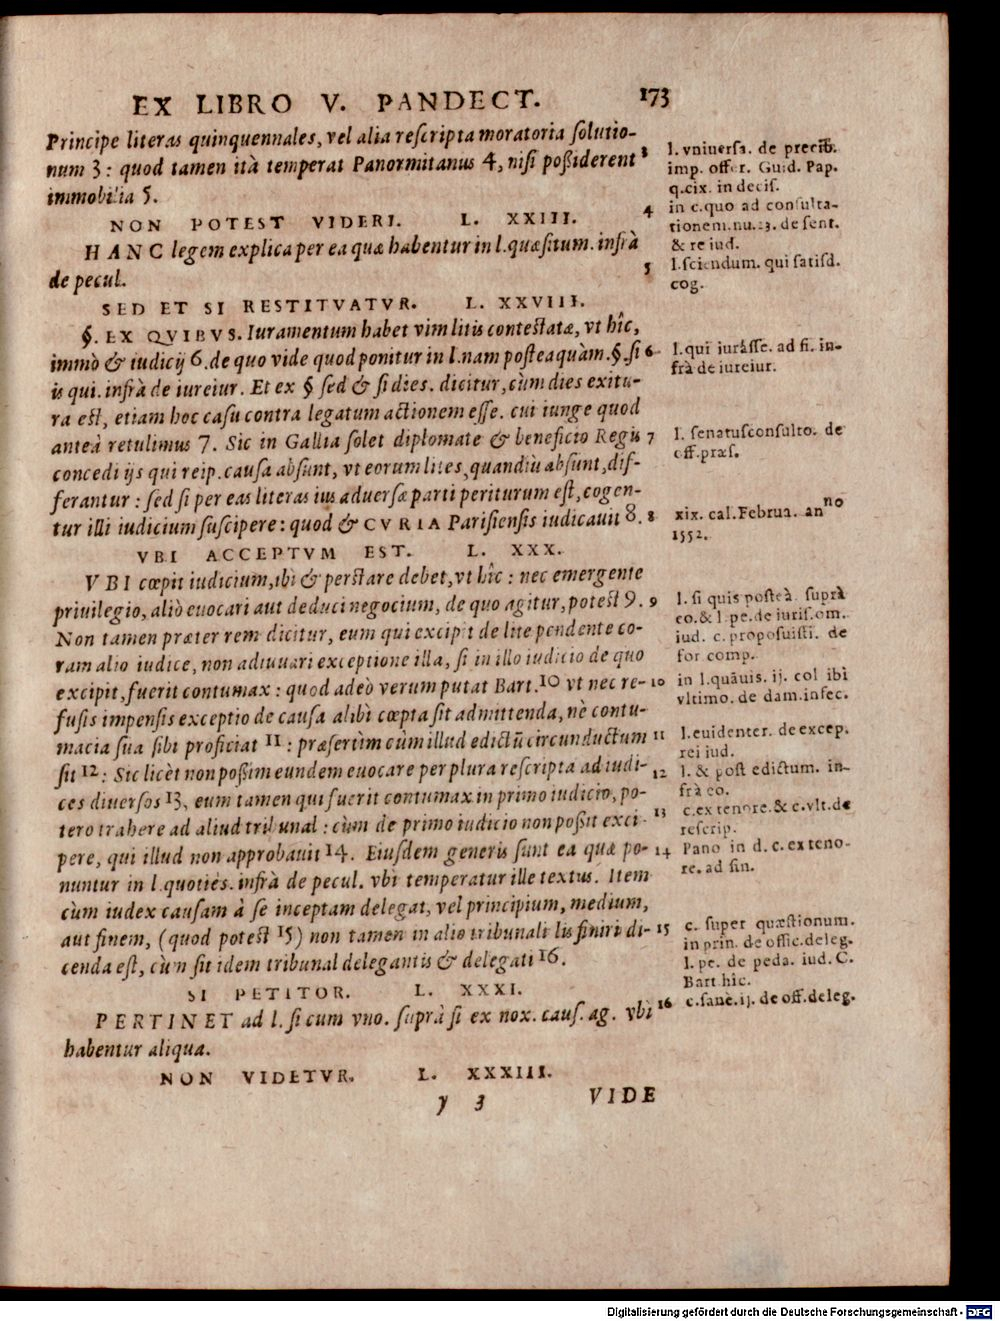 EX LIBRO V. PANDECT. 173
Principe literas quinquennales, vel alia reſcripta moratoria ſolutio-
num 3 : quod tamen ità temperat Panormitanus 4, niſi poßiderent
immobilia 5.
NON POTEST VIDERI. L. XXIII.
HANC legem explica per ea quæ habentur in l. quæſitum. infrà
de pecul.
SED ET SI RESTITVATVR. L. XXVIII.
§. EX QVIBVS. Iuramentum habet vim litis conteſtatæ, vt hîc,
immò & iudicij 6. de quo vide quod ponitur in l. nam poſteaquàm. §. ſi
is qui. infrà de iureiur. Et ex § ſed & ſi dies. dicitur, cùm dies exitu-
ra eſt, etiam hoc caſu contra legatum actionem eſſe. cui iunge quod
anteà retulimus 7. Sic in Gallia ſolet diplomate & beneficio Regis
concedi ijs qui reip. cauſa abſunt, vt eorum lites, quandiù abſunt, dif-
ferantur : ſed ſi per eas literas ius aduerſæ parti periturum eſt, cogen-
tur illi iudicium ſuſcipere : quod & CVRIA Pariſienſis iudicauit 8.
VBI ACCEPTVM EST. L. XXX.
VBI cœpit iudicium, ibi & perſtare debet, vt hîc : nec emergente
priuilegio, aliò euocari aut deduci negocium, de quo agitur, poteſt 9.
Non tamen præter rem dicitur, eum qui excipit de lite pendente co-
ram alio iudice, non adiuuari exceptione illa, ſi in illo iudicio de quo
excipit, fuerit contumax : quod adeò verum putat Bart. 10 vt nec re-
fuſis impenſis exceptio de cauſa alibì cœpta ſit admittenda, nè contu-
macia ſua ſibi proficiat 11 : præſertìm cùm illud edictū circunductum
ſit 12 : Sic licèt non poßim eundem euocare per plura reſcripta ad iudi-
ces diuerſos 13, eum tamen qui fuerit contumax in primo iudicio, po-
tero trahere ad aliud tribunal : cùm de primo iudicio non poßit exci-
pere, qui illud non approbauit 14. Eiuſdem generis ſunt ea quæ po-
nuntur in l. quotiès. infrà de pecul. vbi temperatur ille textus. Item
cùm iudex cauſam à ſe inceptam delegat, vel principium, medium,
aut finem, (quod poteſt 15) non tamen in alio tribunali lis finiri di-
cenda eſt, cùm ſit idem tribunal delegantis & delegati 16.
SI PETITOR. L. XXXI.
PERTINET ad l. ſi cum vno. ſuprà ſi ex nox. cauſ. ag. vbi
habentur aliqua.
NON VIDETVR. L. XXXIII.
y 3 VIDE
3 l. vniuerſa. de precib.
imp. offer. Guid. Pap.
q. cix. in deciſ.
4 in c. quo ad conſulta-
tionem. nu. 23. de ſent.
& re iud.
5 l. ſciendum. qui ſatiſd.
cog.
6 l. qui iuraſſe. ad fi. in-
frà de iureiur.
7 l. ſenatuſconſulto. de
off. præſ.
8 xix. cal. Februa. anno
1552.
9 l. ſi quis poſteà. ſuprà
eo. & l. pe. de iuriſ. om.
iud. c. propoſuiſti. de
for. comp.
10 in l. quāuis. ij. col ibì
vltimo. de dam. infec.
11 l. euidenter. de excep.
rei iud.
12 l. & poſt edictum. in-
frà eo.
13 c. ex tenore. & c. vlt. de
reſcrip.
14 Pano in d. c. ex teno-
re. ad fin.
15 c. ſuper quæſtionum.
in prin. de offic. deleg.
l. pe. de peda. iud. C.
Bart. hîc.
16 c. ſanè. ij. de off. deleg.
Digitalisierung gefördert durch die Deutsche Forschungsgemeinschaft - DFG